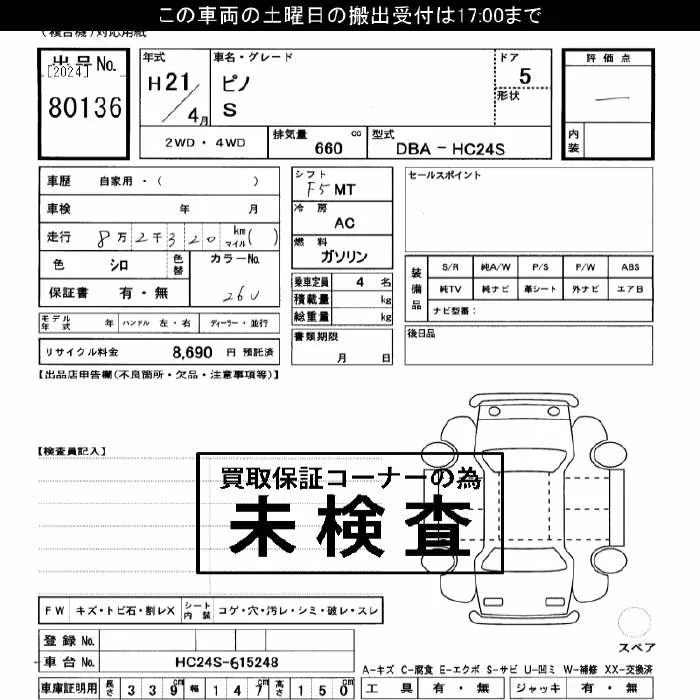 この車両の土曜日の搬出受付は17:00まで
(複合機)対応用紙
出品No.
[2024]
80136
年式
H21/4月
車名・グレード
ピノ
S
ドア
5
形状
評価点
—
内装
2WD・4WD
排気量 660 cc
型式 DBA-HC24S
車歴 自家用・( )
車検 年 月
走行 8万2千320 km マイル( )
色 シロ 色替
カラーNo.
26U
保証書 有・無
シフト
F5 MT
冷房
AC
燃料
ガソリン
セールスポイント
装備品
S/R 純A/W P/S P/W ABS
純TV 純ナビ 革シート 外ナビ エアB
ナビ型番:
乗車定員 4 名
積載量 kg
総重量 kg
モデル年式 年 ハンドル 左・右 ディーラー・並行
書類期限
月 日
後日品
リサイクル料金 8,690 円 預託済
【出品店申告欄(不良箇所・欠品・注意事項等)】
【検査員記入】
買取保証コーナーの為
未検査
FW キズ・トビ石・割レX シート内装 コゲ・穴・汚レ・シミ・破レ・スレ
登録No.
車台No. HC24S-615248
スペア
A-キズ C-腐食 E-エクボ S-サビ U-凹ミ W-補修 XX-交換済
車庫証明用 長さ 339cm 幅 147cm 高さ 150cm
工具 有・無 ジャッキ 有・無